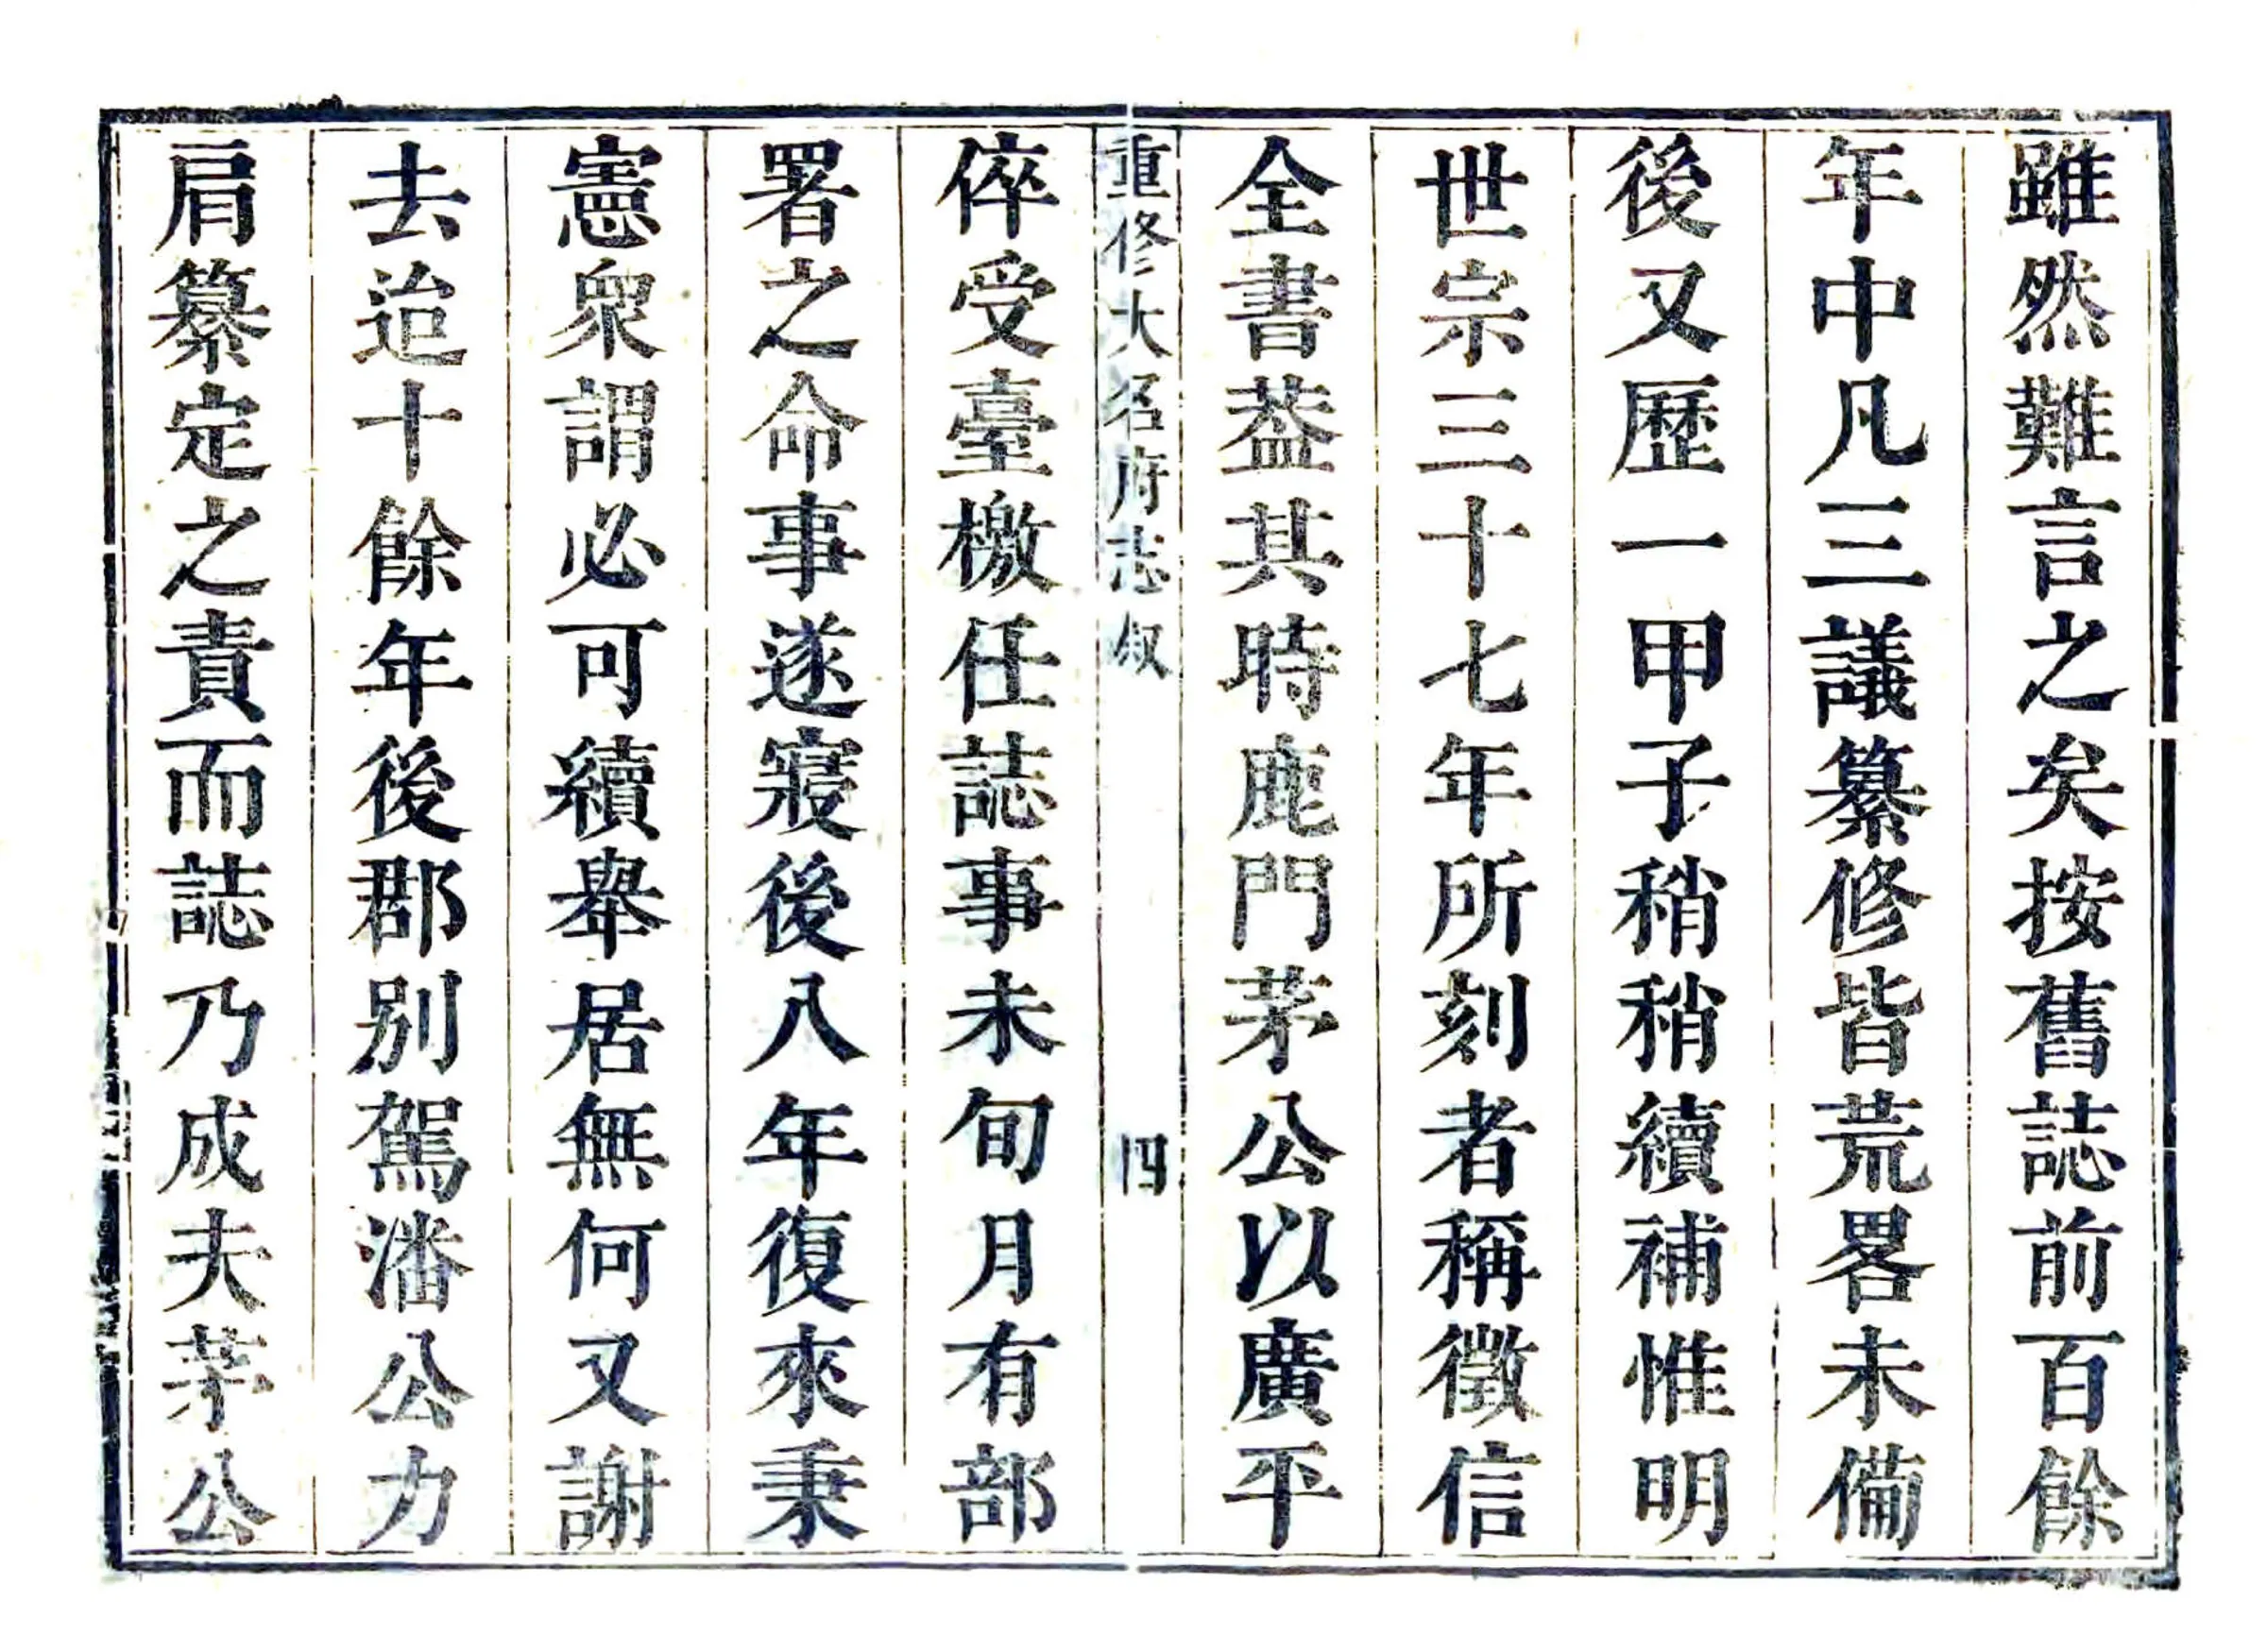 雖然難言之矣按舊誌前百餘
年中凡三議纂修皆荒畧未備
後又歷一甲子稍稍續補惟明
世宗三十七年所刻者稱徵信
全書葢其時鹿門茅公以廣平
重修大名府志叙 四
倅受臺檄任誌事未旬月有部
署之命事遂寢後八年復來秉
憲衆謂必可續舉居無何又謝
去迨十餘年後郡別駕潘公力
肩纂定之責而誌乃成夫茅公